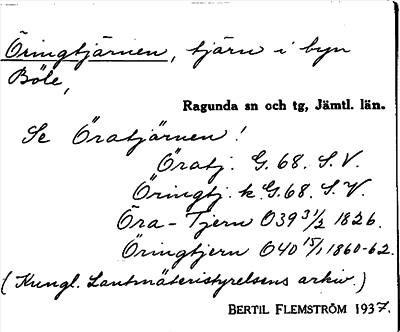 Öringtjärnen, tjärn i byn
Böle,
Ragunda sn och tg, Jämtl. län.
Se Öratjärnen!
Öratj. G. 68. S.V.
Öringtj. k. G. 68. S.V.
Öra-Tjern O39 31/2 1826.
Öringtjern O40 15/1 1860-62.
(Kungl. Lantmäteristyrelsens arkiv.)
BERTIL FLEMSTRÖM 1937.